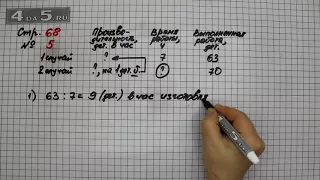 4DA5.RU
Стр. 68
№ 5
Производительность, дет. в час
Время работы, ч
Выполненная работа, дет.
1 случай ? 7 63
2 случай ?, на 1 дет. ? 70
1) 63 : 7 = 9 (дет.) в час изготовл